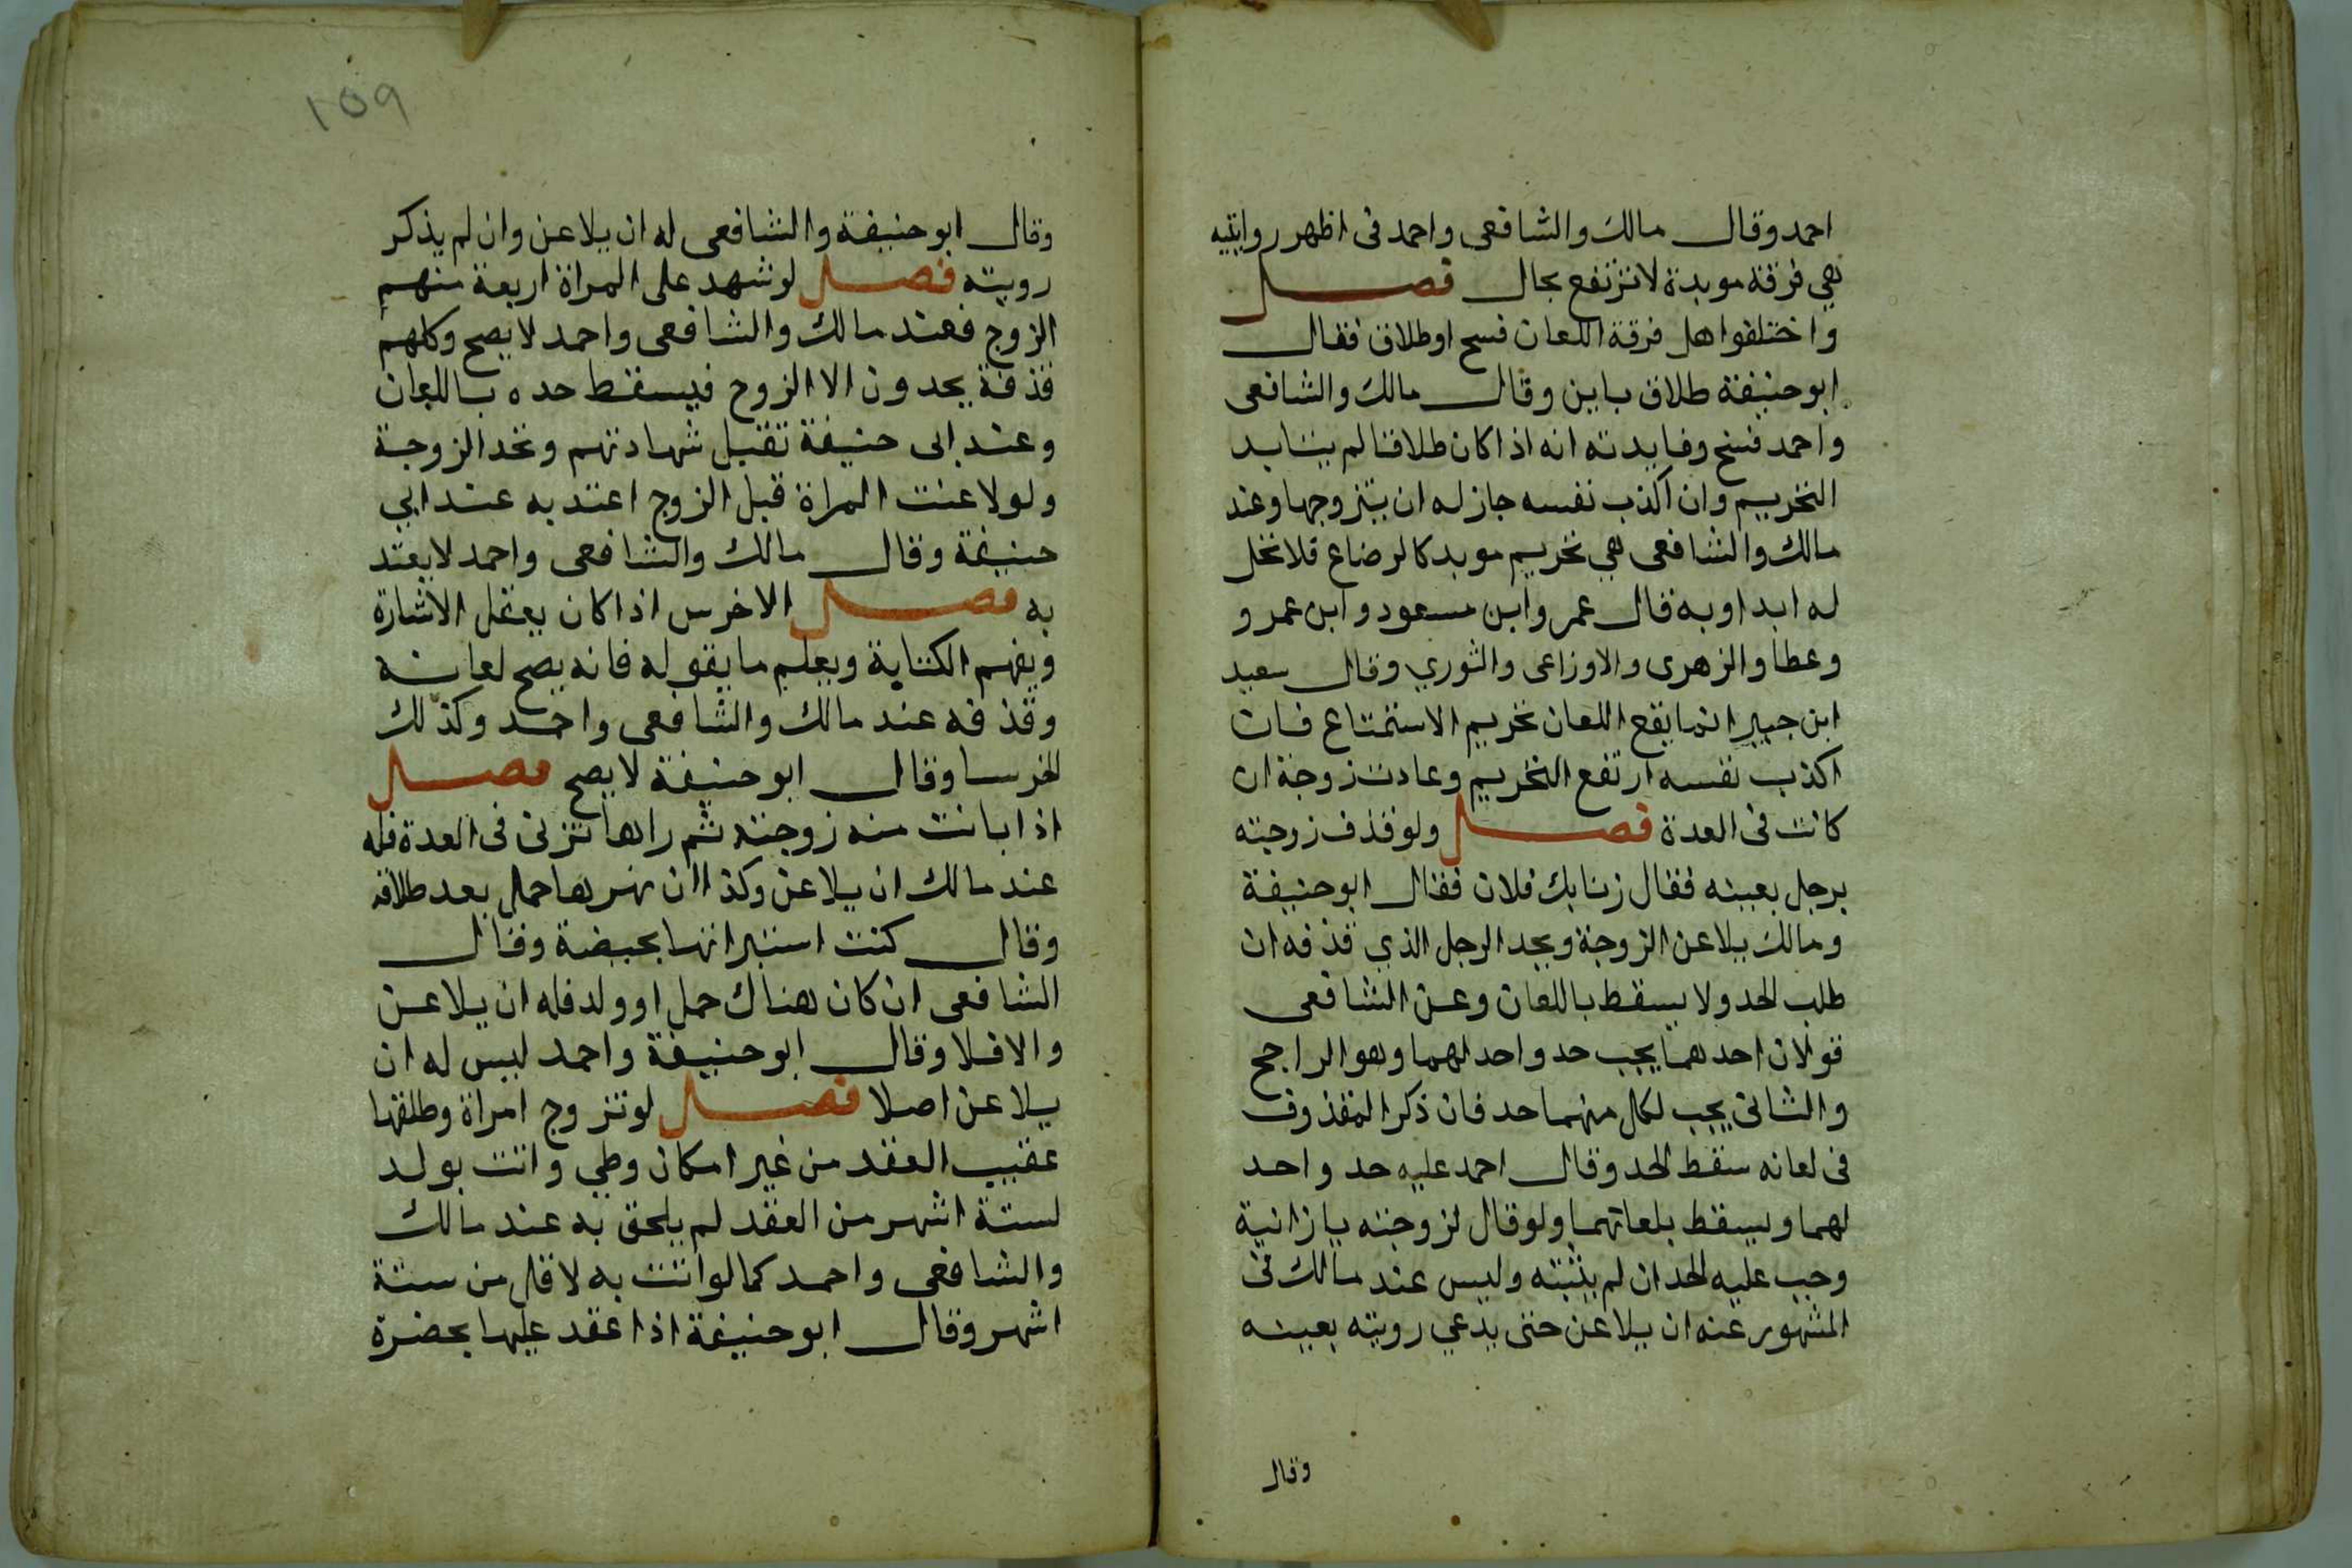 احمد وقال مالك والشافعى واحمد فى اظهر روايتيه
هي فرقة موبدة لا ترتفع بحال فصل
واختلفوا هل فرقة اللعان فسخ او طلاق فقال
ابو حنيفة طلاق باين وقال مالك والشافعى
واحمد فسخ وفايدته انه اذا كان طلاقا لم يتابد
التحريم وان اكذب نفسه جاز له ان يتزوجها وعند
مالك والشافعى هي تحريم موبد كالرضاع فلا تحل
له ابدا وبه قال عمر وابن مسعود وابن عمر و
وعطا والزهرى والاوزاعى والثوري وقال سعيد
ابن جبير انما يقع اللعان تحريم الاستمتاع فان
اكذب نفسه ارتفع التحريم وعادت زوجة ان
كانت فى العدة فصل ولو قذف زوجته
برجل بعينه فقال زنا بك فلان فقال ابو حنيفة
ومالك يلاعن الزوجة ويحد الرجل الذي قذفه ان
طلب الحد ولا يسقط باللعان وعن الشافعى
قولان احدهما يجب حد واحد لهما وهو الراجح
والثانى يجب لكل منهما حد فان ذكر المقذوف
فى لعانه سقط الحد وقال احمد عليه حد واحد
لهما ويسقط بلعانهما ولو قال لزوجته يا زانية
وجب عليه الحد ان لم يثبته وليس عند مالك فى
المشهور عنه ان يلاعن حتى يدعي رويته بعينه
وقال
١٥٩
وقال ابو حنيفة والشافعى له ان يلاعن وان لم يذكر
رويته فصل لو شهد على المراة اربعة منهم
الزوج فعند مالك والشافعى واحمد لا يصح وكلهم
قذفة يحدون الا الزوج فيسقط حده باللعان
وعند ابى حنيفة تقبل شهادتهم وتحد الزوجة
ولو لاعنت المراة قبل الزوج اعتد به عند ابي
حنيفة وقال مالك والشافعى واحمد لا يعتد
به فصل الاخرس اذا كان يعقل الاشارة
ويفهم الكتاية ويعلم ما يقوله فانه يصح لعانه
وقذفه عند مالك والشافعى واحمد وكذلك
الخرسا وقال ابو حنيفة لا يصح فصل
اذا بانت منه زوجته ثم راها تزنى فى العدة فله
عند مالك ان يلاعن وكذا ان ظهر بها حمل بعد طلاقه
وقال كنت استبراتها بحيضة وقال
الشافعى ان كان هناك حمل او ولد فله ان يلاعن
والا فلا وقال ابو حنيفة واحمد ليس له ان
يلاعن اصلا فصل لو تزوج امراة وطلقها
عقيب العقد من غير امكان وطي واتت بولد
لستة اشهر من العقد لم يلحق به عند مالك
والشافعى واحمد كما لو اتت به لاقل من ستة
اشهر وقال ابو حنيفة اذا عقد عليها بحضرة